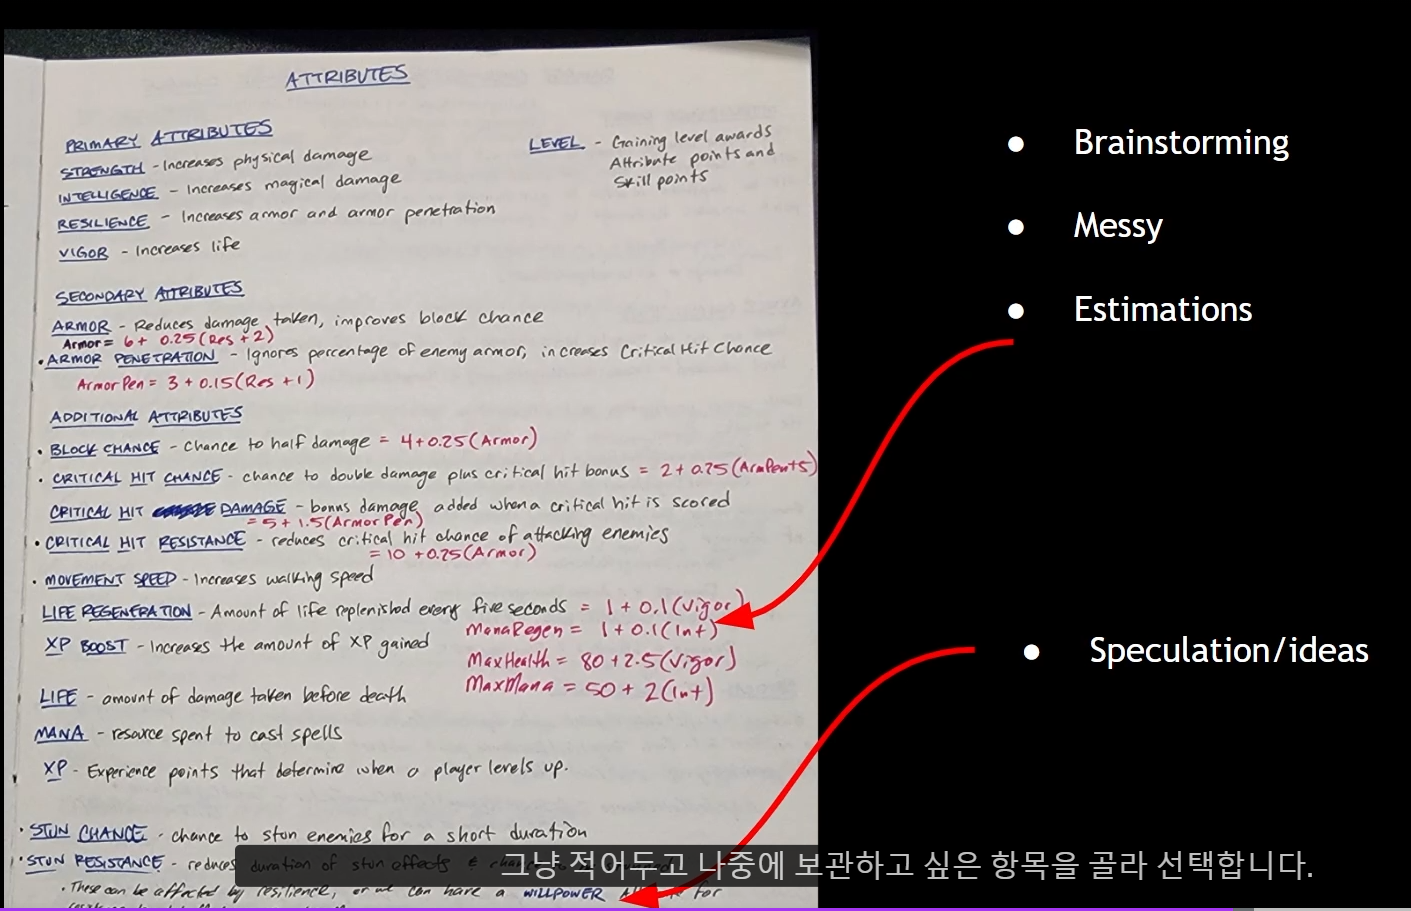 ATTRIBUTES
PRIMARY ATTRIBUTES
STRENGTH - Increases physical damage
INTELLIGENCE - Increases magical damage
RESILIENCE - Increases armor and armor penetration
VIGOR - Increases life
LEVEL - Gaining level awards
Attribute points and
Skill points
SECONDARY ATTRIBUTES
ARMOR - Reduces damage taken, improves block chance
Armor = 6 + 0.25 (Res + 2)
• ARMOR PENETRATION - Ignores percentage of enemy armor, increases Critical Hit Chance
ArmorPen = 3 + 0.15 (Res + 1)
ADDITIONAL ATTRIBUTES
• BLOCK CHANCE - Chance to half damage = 4 + 0.25 (Armor)
• CRITICAL HIT CHANCE - chance to double damage plus critical hit bonus = 2 + 0.25
CRITICAL HIT DAMAGE - bonus damage added when a critical hit is scored
= 5 + 1.5 (ArmorPen)
• CRITICAL HIT RESISTANCE - reduces critical hit chance of attacking enemies
= 10 + 0.25 (Armor)
• MOVEMENT SPEED - Increases walking speed
LIFE REGENERATION - Amount of life replenished every five seconds = 1 + 0.1 (Vigor)
ManaRegen = 1 + 0.1 (Int)
XP BOOST - Increases the amount of XP gained
MaxHealth = 80 + 2.5 (Vigor)
MaxMana = 50 + 2 (Int)
LIFE - amount of damage taken before death
MANA - resource spent to cast spells
XP - Experience points that determine when a player levels up.
• STUN CHANCE - chance to stun enemies for a short duration
• STUN RESISTANCE - reduces duration of stun effects &
• These can be affected by resilience, or we can have a WILLPOWER for
• Brainstorming
• Messy
• Estimations
• Speculation/ideas
그냥 적어두고 나중에 보관하고 싶은 항목을 골라 선택합니다.